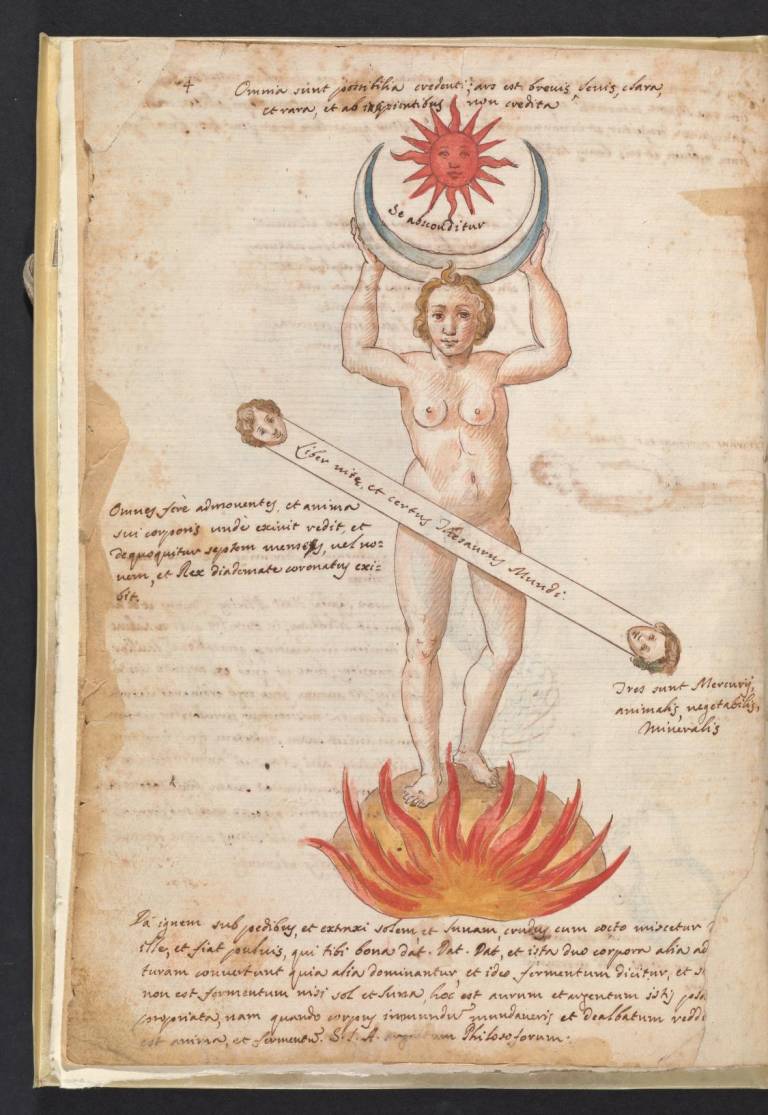 4
Omnia sunt possibilia credenti; ars est brevis, levis, clara,
et rara, et ab insipientibus non credita
Se absconditur
Liber vitæ, et certus Thesaurus Mundi.
Omnes ferè admoventes, et anima
sui corporis unde exivit redit, et
dequoquitur septem menses, vel no=
vem, et Rex diademate coronatus exi=
bit.
Tres sunt Mercurij,
animalis, vegetabilis,
Mineralis
Da ignem sub pedibus, et extraxi solem et lunam, crudus cum cocto miscetur
ille, et fiat pulvis, qui tibi bona dat. Dat. Dat, et ista duo corpora alia ad
turam convertunt quia alia dominantur et ideo fermentum dicitur, et
non est fermentum nisi sol et luna, hoc est aurum et argentum istis
propriata, nam quando corpus immundũ mundaveris et dealbatum
est anima, et fermentũ. S. I. A. Philosoforum.